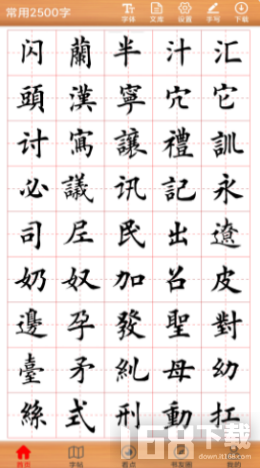 常用2500字 字体 文库 设置 手写 下载
闪 蘭 半 汁 汇
頭 漢 寧 穴 它
讨 寫 讓 禮 訓
必 議 讯 記 永
司 尼 民 出 遼
奶 奴 加 召 皮
邊 孕 發 聖 對
臺 矛 糾 母 幼
絲 式 刑 動 扛
168下载
down.it168.com
首页 字帖 看点 书友圈 我的